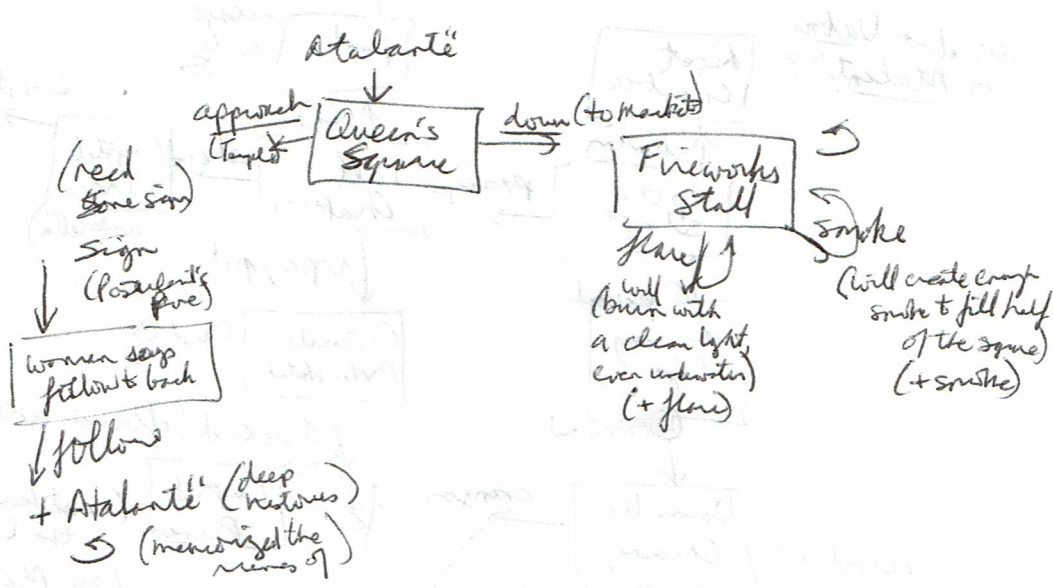 Atalantë
approach
(Temple)
Queen's
Square
down (to market)
Fireworks
Stall
(need
some sign)
sign
(Postulant's
woman says
follow to back
follow
+ Atalantë (deep
histories)
(memorized the
names of)
flare
(will
burn with
a clean light,
even underwater)
(+ flare)
smoke
(will create enough
smoke to fill half
of the square)
(+ smoke)